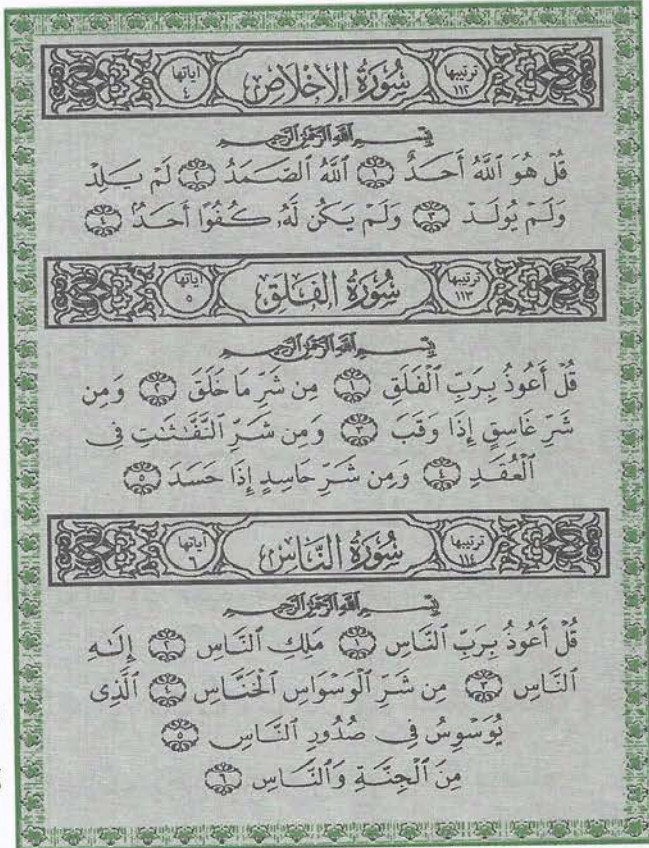 ترتيبها ١١٢ سُورَةُ الإِخْلَاصِ آياتها ٤
بِسْمِ اللَّهِ الرَّحْمَٰنِ الرَّحِيمِ
قُلْ هُوَ ٱللَّهُ أَحَدٌ ١ ٱللَّهُ ٱلصَّمَدُ ٢ لَمْ يَلِدْ
وَلَمْ يُولَدْ ٣ وَلَمْ يَكُن لَّهُۥ كُفُوًا أَحَدٌۢ ٤
ترتيبها ١١٣ سُورَةُ الفَلَقِ آياتها ٥
بِسْمِ اللَّهِ الرَّحْمَٰنِ الرَّحِيمِ
قُلْ أَعُوذُ بِرَبِّ ٱلْفَلَقِ ١ مِن شَرِّ مَا خَلَقَ ٢ وَمِن
شَرِّ غَاسِقٍ إِذَا وَقَبَ ٣ وَمِن شَرِّ ٱلنَّفَّٰثَٰتِ فِى
ٱلْعُقَدِ ٤ وَمِن شَرِّ حَاسِدٍ إِذَا حَسَدَ ٥
ترتيبها ١١٤ سُورَةُ النَّاسِ آياتها ٦
بِسْمِ اللَّهِ الرَّحْمَٰنِ الرَّحِيمِ
قُلْ أَعُوذُ بِرَبِّ ٱلنَّاسِ ١ مَلِكِ ٱلنَّاسِ ٢ إِلَٰهِ
ٱلنَّاسِ ٣ مِن شَرِّ ٱلْوَسْوَاسِ ٱلْخَنَّاسِ ٤ ٱلَّذِى
يُوَسْوِسُ فِى صُدُورِ ٱلنَّاسِ ٥
مِنَ ٱلْجِنَّةِ وَٱلنَّاسِ ٦